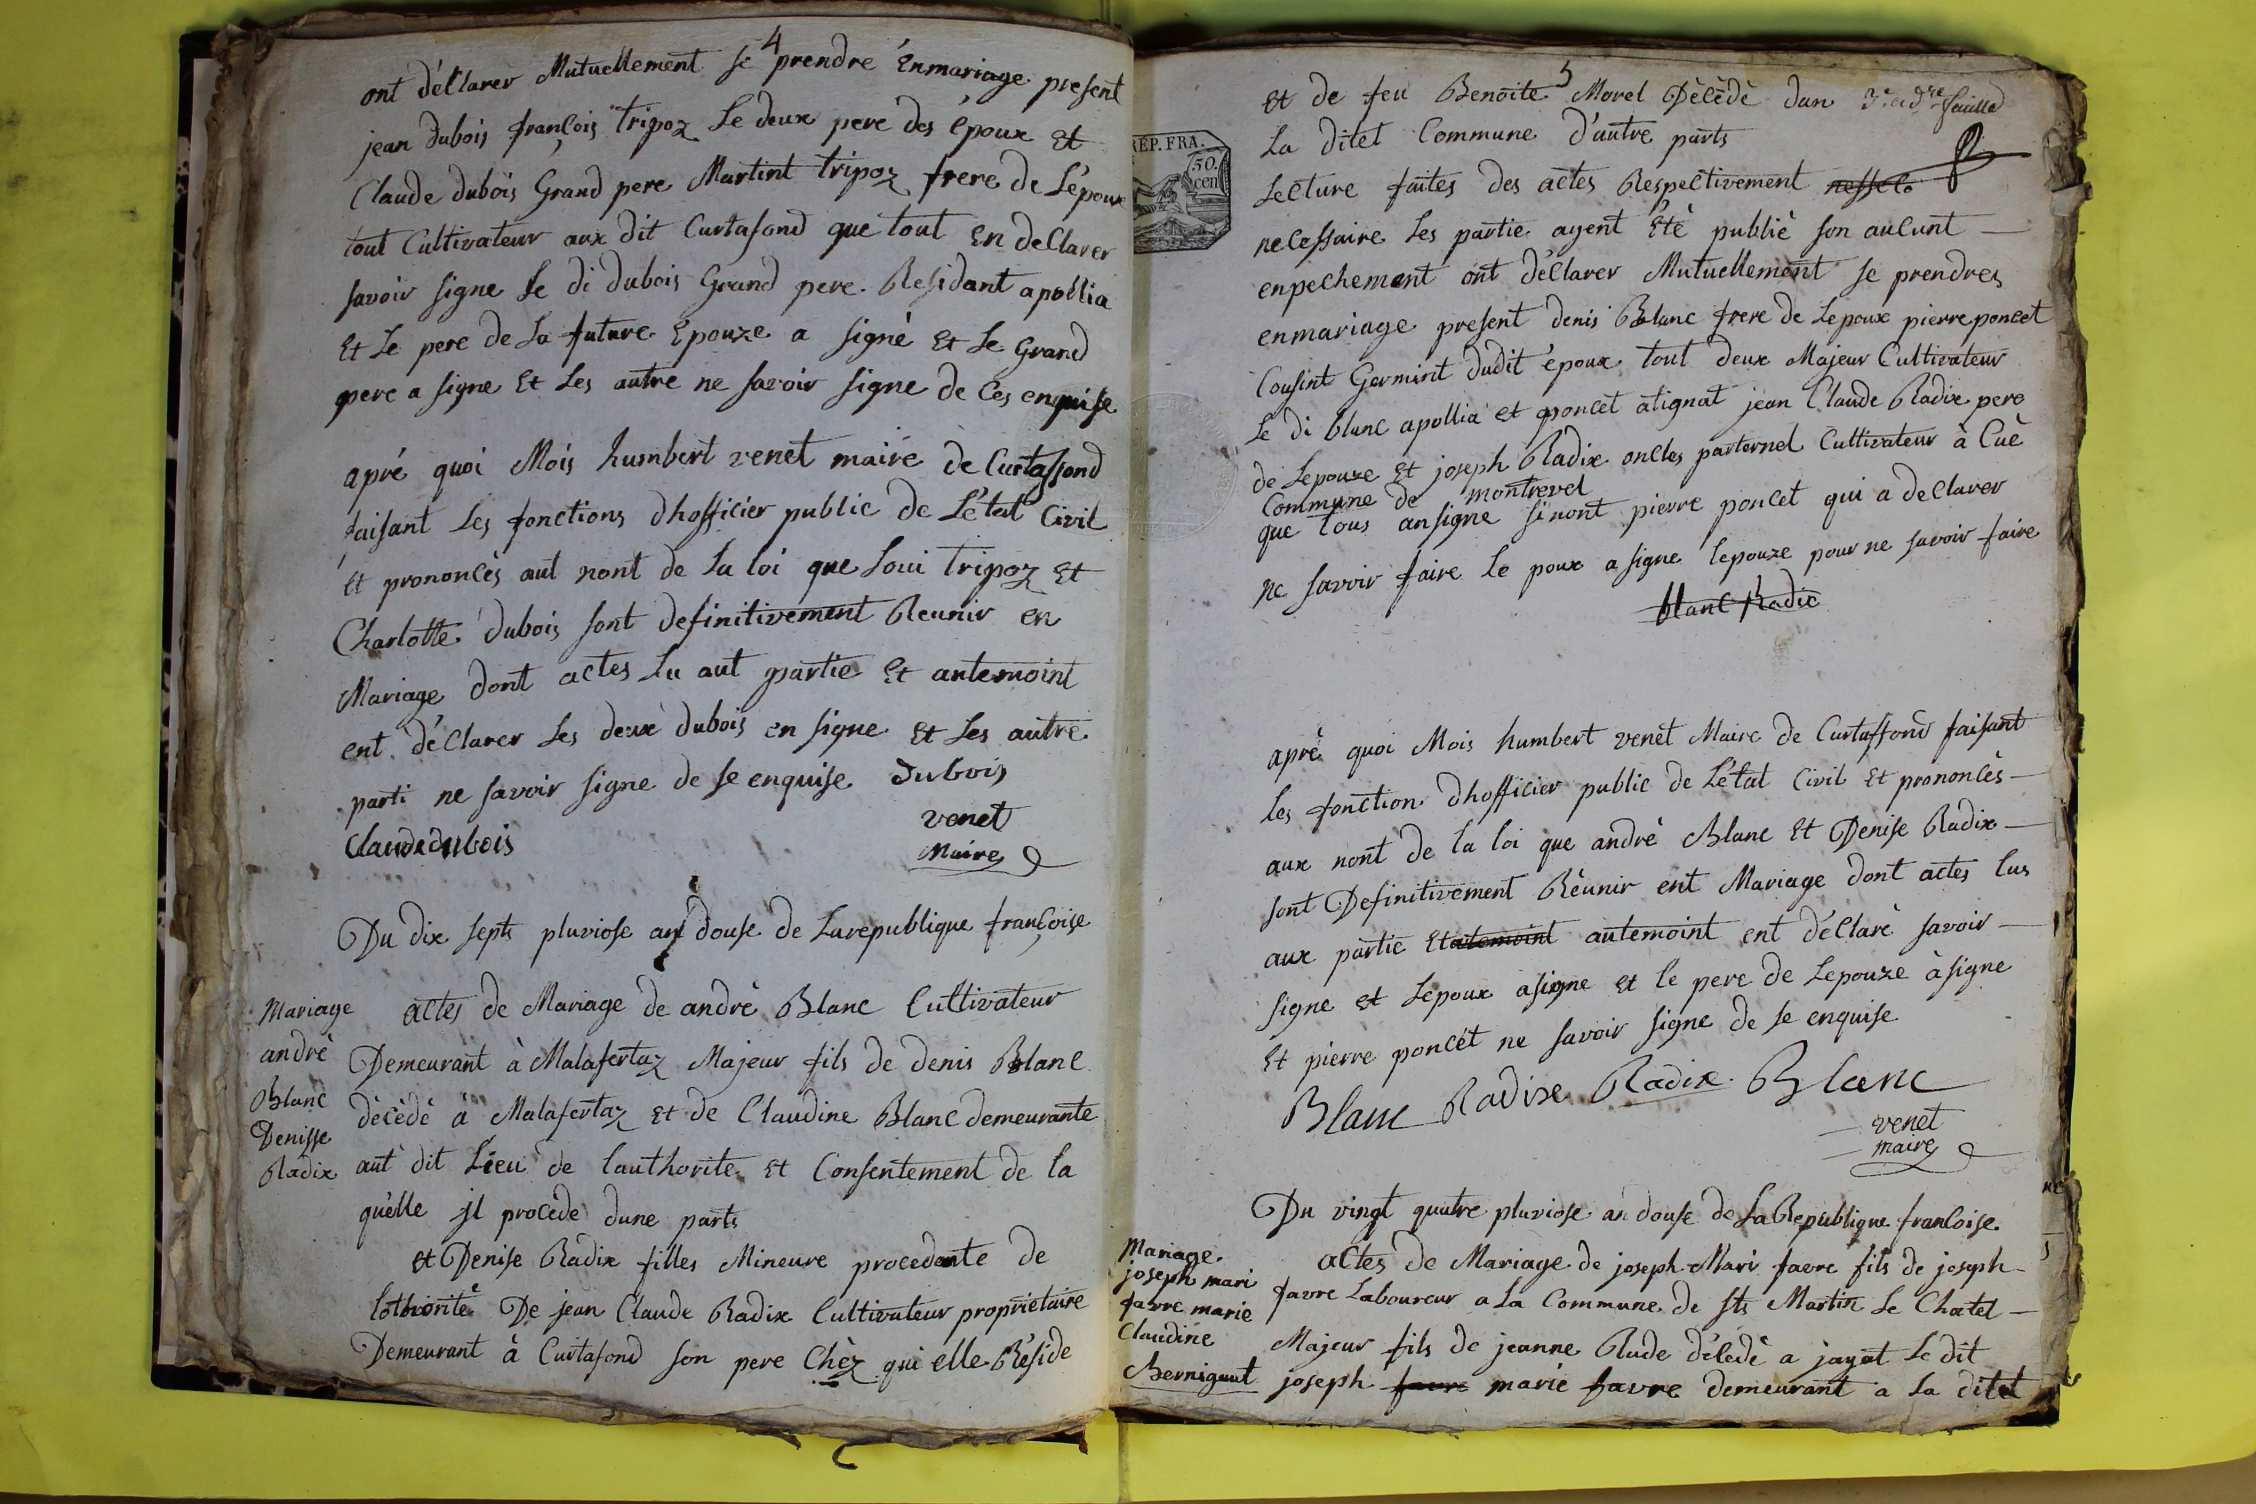 4
ont déClarer Mutuellement se prendre Enmariage present
jean dubois françois tripoz Le deux pere des époux Et
Claude dubois Grand pere Martint tripoz frere de L'époux
tout Cultivateur aux dit Curtafond que tout En deClarer
savoir signe Le di dubois Grand pere Residant apollia
Et Le pere de La future Epouze a signé Et Le Grand
pere a signe Et Les autre ne savoir signe de Ces enquise
apré quoi Mois humbert venet maire de Curtaffond
faisant Les fonctions dhofficier public de L'état Civil
Et prononcés aut nont de La Loi que Loui tripoz Et
Charlotte dubois sont definitivement Reunir en
Mariage dont actes Lu aut partie Et antemoint
ent déClarer Les deux dubois en signe Et Les autre
parti ne savoir signe de se enquise dubois
venet
Claude dubois
Maire
Du dix septs pluviose an douse de Larepublique françoise
Mariage
andrè
Blanc
Denisse
Radix
actes de Mariage de andrè Blanc Cultivateur
Demeurant à Malafertaz Majeur fils de denis Blanc
décèdè à Malafertaz Et de Claudine Blanc demeurante
aut dit Lieu de lauthorite Et Consentement de la
quelle jl procede dune parts
et Denise Radix filles Mineure procedante de
lothorité De jean Claude Radix Cultivateur proprietaire
Demeurant à Curtafond son pere Chèz qui elle Réside
5
RÉP. FRA.
50.
cen
Et de feu Benoite Morel Dècèdè dan
La ditet Commune d'autre parts
Lecture faites des actes Respectivement
necessaire Les partie ayent Étè publiè son auCunt
enpechement ont déClarer Mutuellement se prendres
enmariage present denis Blanc frere de Lepoux pierre poncet
Cousint Germint dudit époux tout deux Majeur Cultivateur
Le di blanc apollia et poncet atignat jean Claude Radix pere
de Lepouze Et joseph Radix oncles parternel Cultivateur à Cuè
Commune de montrevel
que tous ansigne sinont pierre poncet qui a deClarer
ne savoir faire Le poux a signe lepouze pour ne savoir faire
blanc Radix
aprè quoi Mois humbert venet Maire de Curtaffond faisant
les fonction dhofficier public de L'état Civil Et prononcès
aux nont de la loi que andrè Blanc Et Denise Radix
sont Definitivement Rèunir ent Mariage dont actes lus
aux partie Etatemoint autemoint ent déClarè savoir
signe et Lepoux asigne Et le pere de Lepouze à signe
Et pierre poncét ne savoir signe de se enquise
Blanc Radix Radix Blanc
venet
maire
Du vingt quatre pluviose an douse de LaRepublique francoise
Mariage
joseph mari
favre marie
Claudine
Bernigaut
actes de Mariage de joseph Mari favre fils de joseph
favre Laboureur a La Commune de sts Martin Le Chatel
Majeur fils de jeanne Rude déCedè a jayat Le dit
joseph favre marie favre demeurant a La ditet